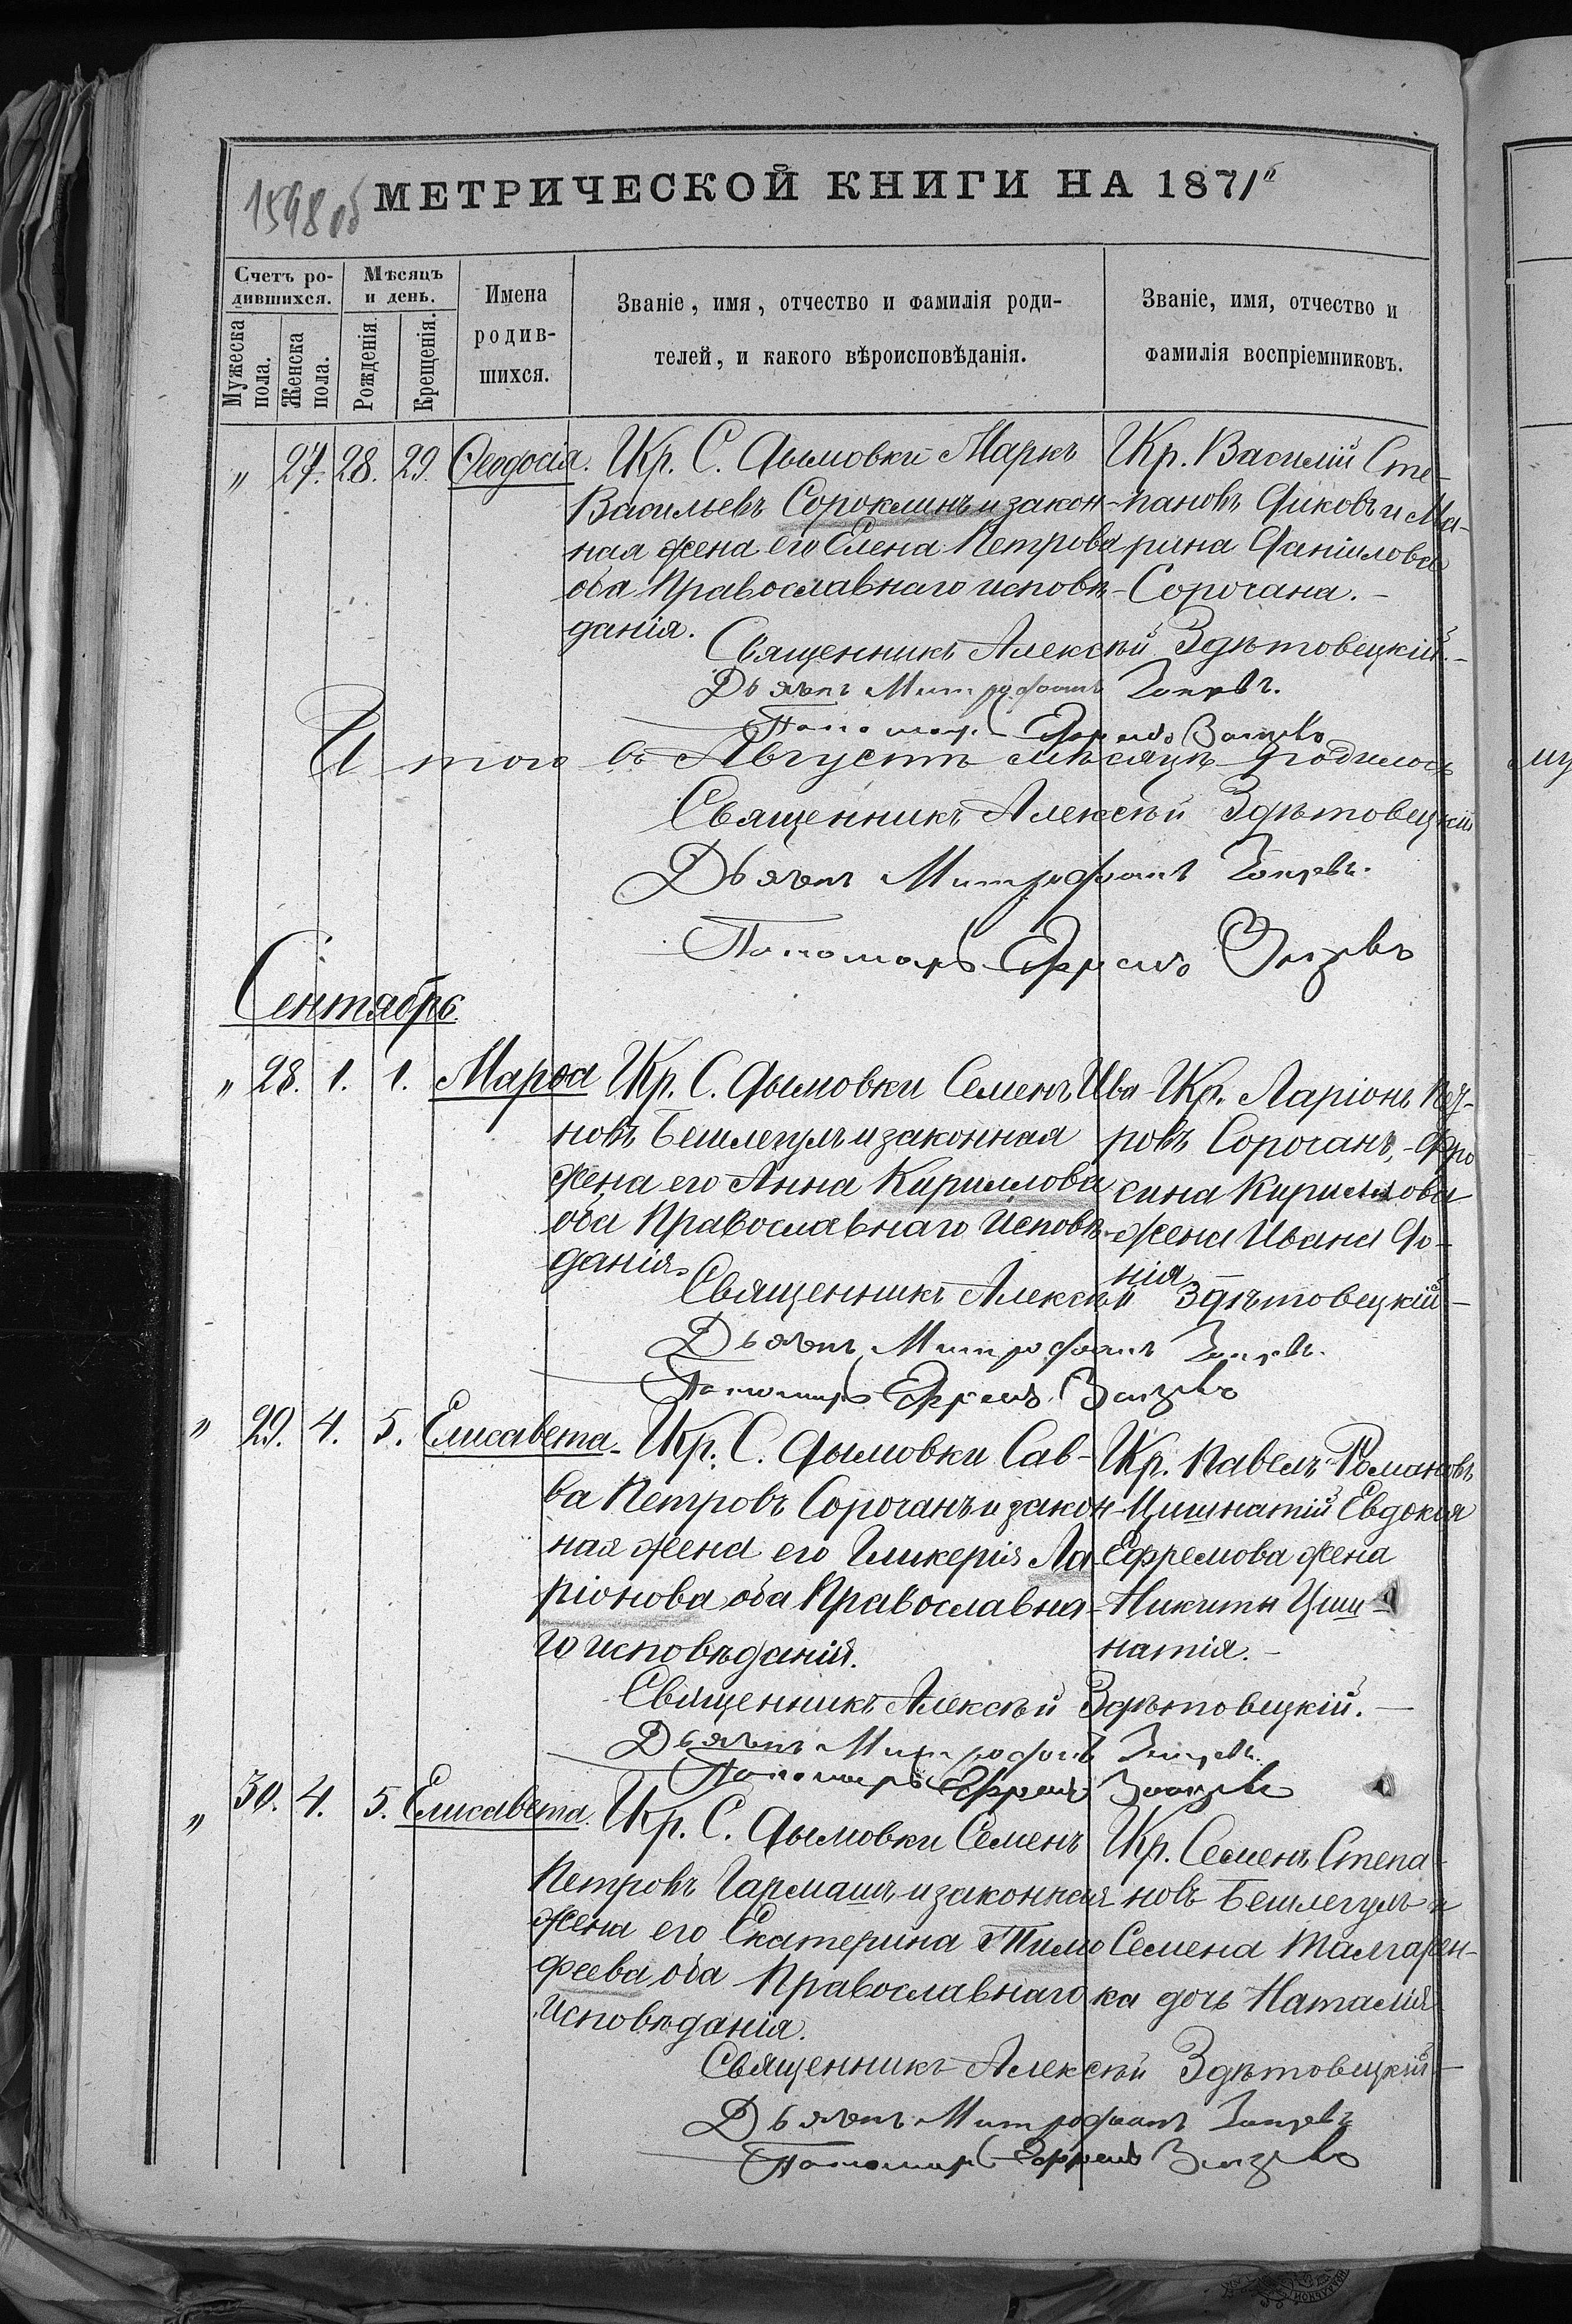 1598 об
МЕТРИЧЕСКОЙ КНИГИ НА 1871
Счетъ ро-
дившихся.
Мѣсяцъ
и день.
Мужеска
пола.
Женска
пола.
Рожденія.
Крещенія.
Имена
родив-
шихся.
Званіе, имя, отчество и фамилія роди-
телей, и какого вѣроисповѣданія.
Званіе, имя, отчество и
фамилія воспріемниковъ.
„ 27. 28. 29. Ѳеодосія. Цкр. С. Дымовки Маркъ
Васильевъ Сороклинъ и закон-
ная жена его Елена Петрова
оба Православнаго исповѣ-
данія.
Цкр. Василій Сте-
пановъ Диковъ и Ма-
рина Даніилова
Сорочана. -
Священникъ Алексѣй Здѣтовецкій. -
Дьячекъ Митрофанъ
Пономарь Ефремъ
И того въ Августѣ мѣсяцѣ родилось
Священникъ Алексѣй Здѣтовецкій
Дьячекъ Митрофанъ
Пономарь Ефремъ
Сентябрь
„ 28. 1. 1. Марѳа Цкр. С. Дымовки Семенъ Ива-
новъ Бешлегулъ и законная
жена его Анна Кириллова
оба Православнаго Исповѣ-
данія.
Цкр. Ларіонъ Пет-
ровъ Сорочанъ, - Фро
сина Кириллова
жена Ивана Фо-
нія -
Священникъ Алексѣй Здѣтовецкій. -
Дьячекъ Митрофанъ
Пономарь Ефремъ
„ 29. 4. 5. Елисавета. Цкр. С. Дымовки Сав-
ва Петровъ Сорочанъ и закон-
ная жена его Гликерія Ла-
ріонова оба Православна-
го исповѣданія.
Цкр. Павелъ Романовъ
Цишнатій Евдокія
Ефремова жена
Никиты Циш-
натія. -
Священникъ Алексѣй Здѣтовецкій. -
Дьячекъ Митрофанъ
Пономарь Ефремъ
„ 30. 4. 5. Елисавета. Цкр. С. Дымовки Семенъ
Петровъ Гармашъ и законная
жена его Екатерина Тимо
феева оба Православнаго
исповѣданія.
Цкр. Семенъ Степа-
новъ Бешлегулъ и
Семена Малгарен-
ка дочь Наталія
Священникъ Алексѣй Здѣтовецкій -
Дьячекъ Митрофанъ
Пономарь Ефремъ